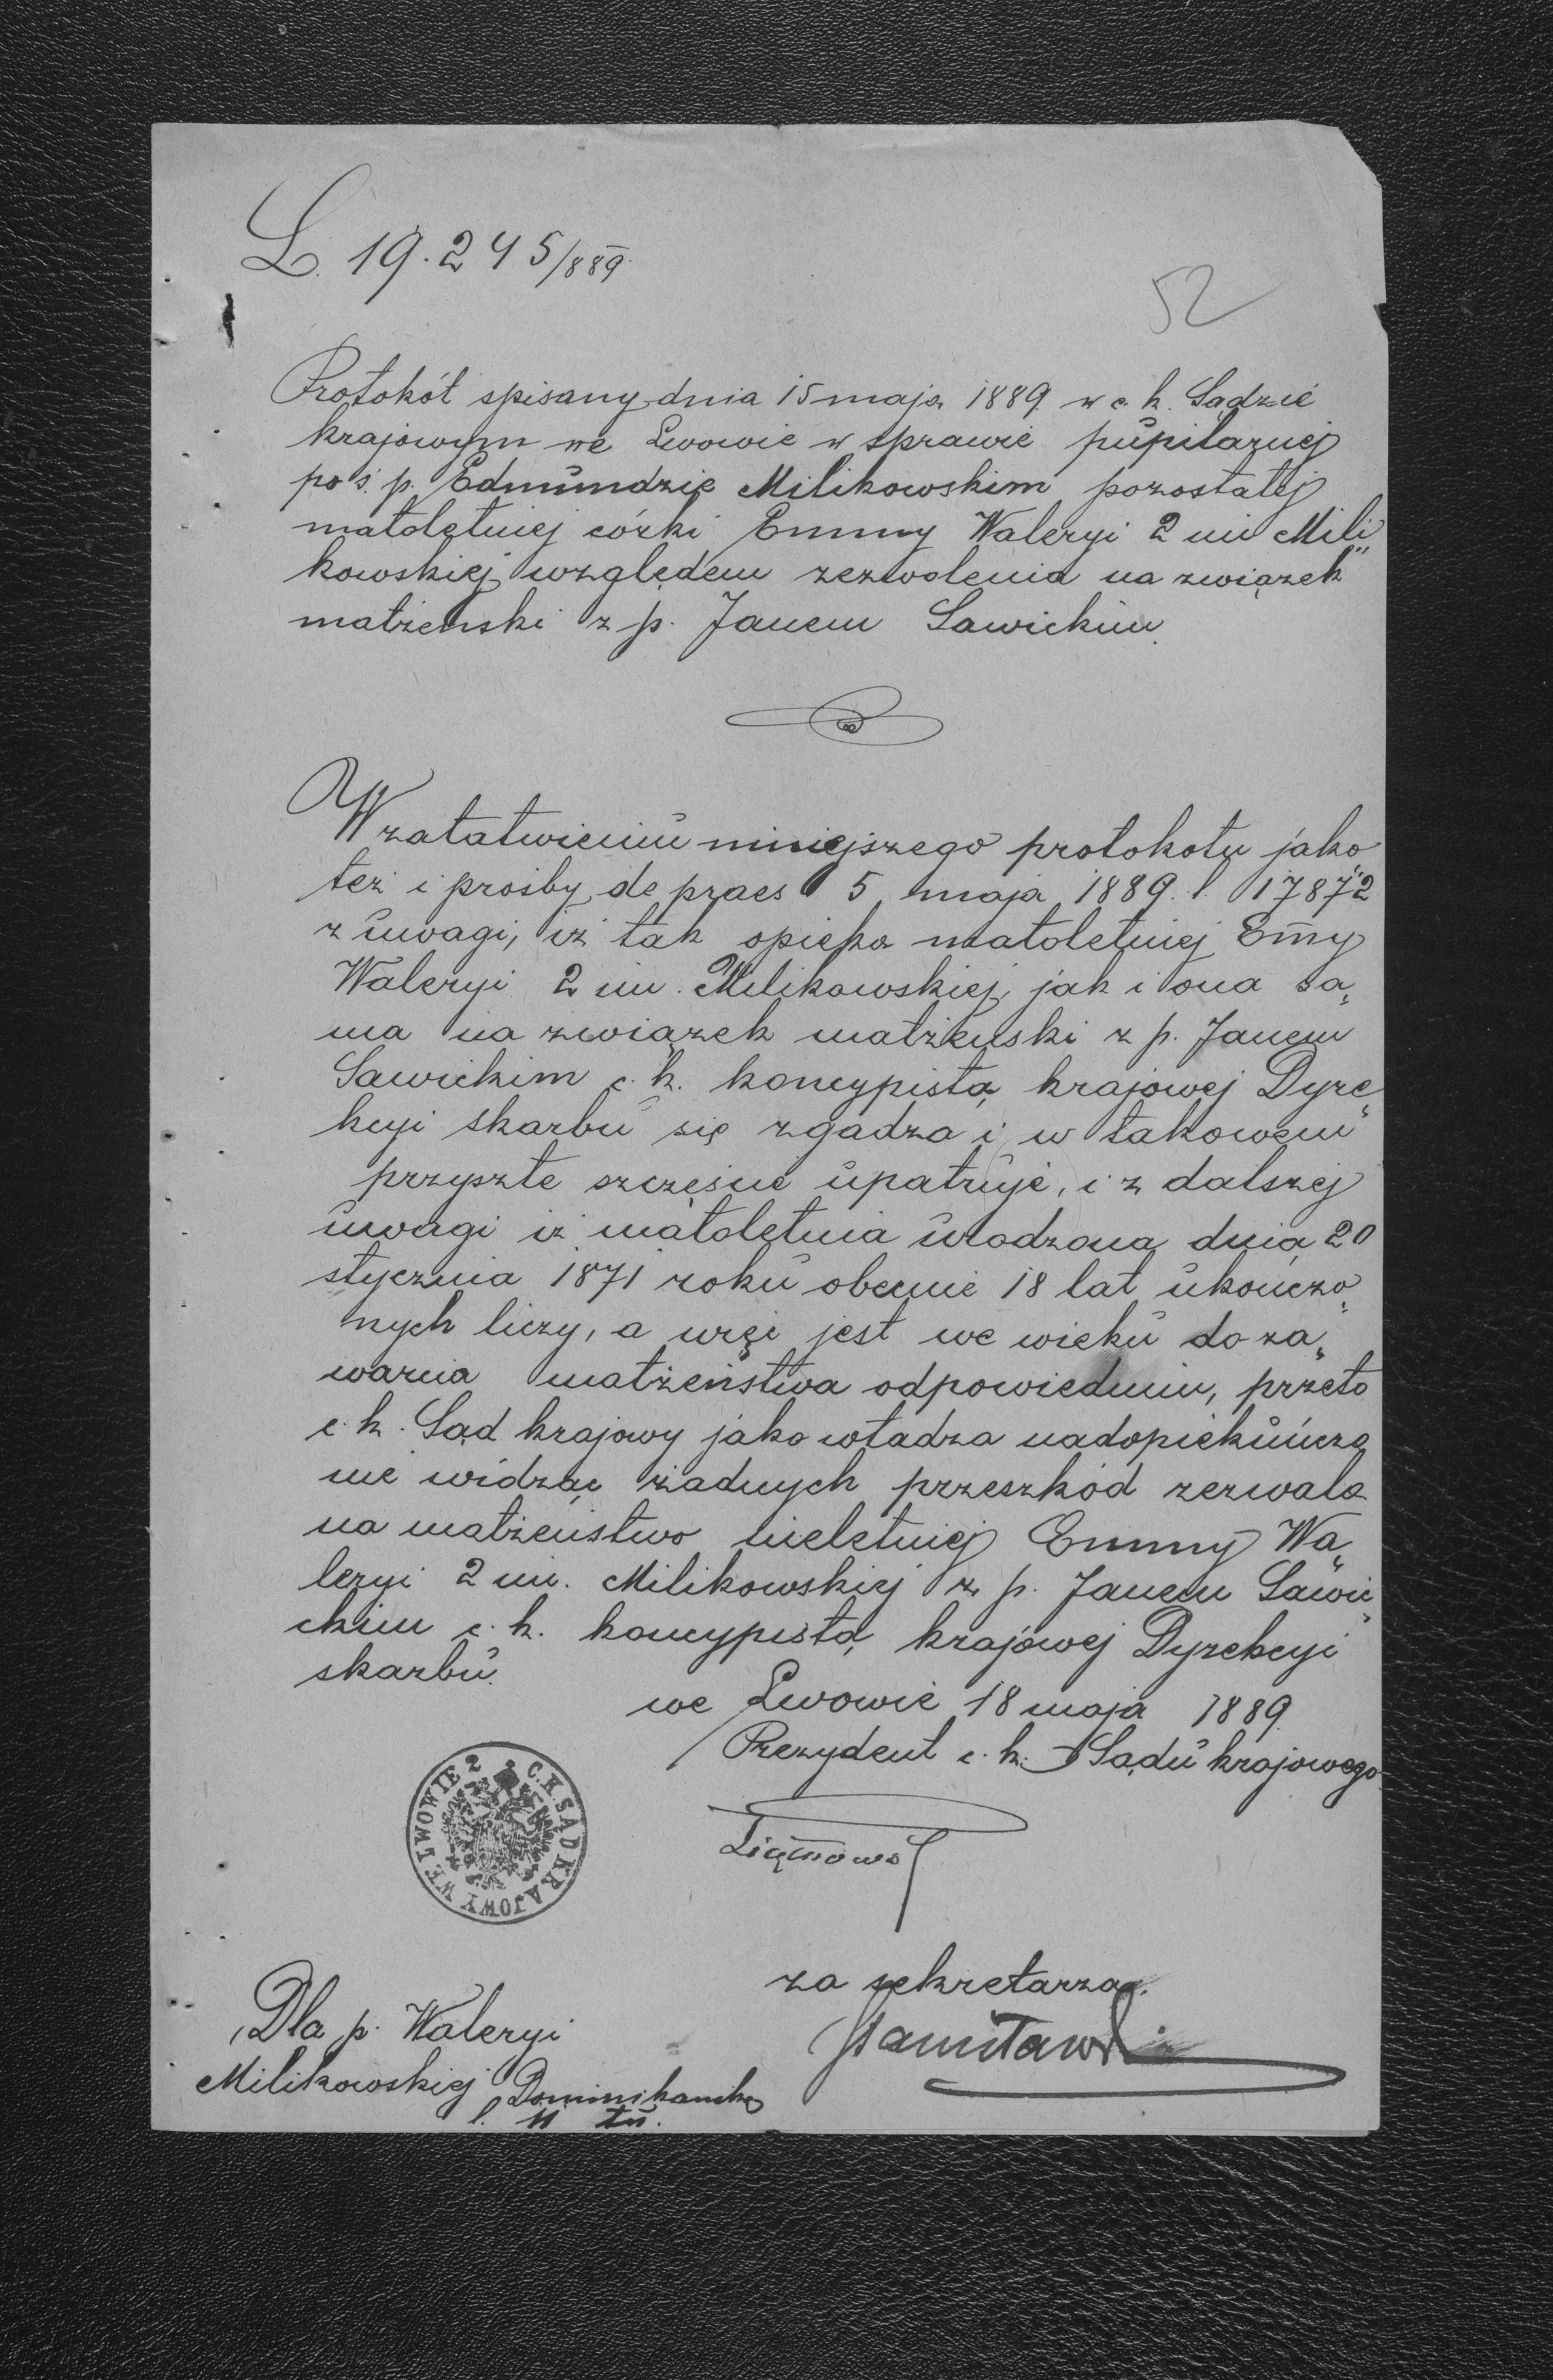 L. 19.245/889.
52
Protokół spisany dnia 15 maja 1889 w c. k. Sądzie
krajowym we Lwowie w sprawie pupilarnej
po ś. p. Edmundzie Milikowskim pozostałej
małoletniej córki Emmy Waleryi 2 im Mili„
kowskiej względem zezwolenia na związek
małżeński z p. Janem Sawickim.
W załatwieniu niniejszego protokołu jako
też i prośby de praes 5 maja 1889 l. 17872
z uwagi, iż tak opieka małoletniej Em̄y
Waleryi 2 im. Milikowskiej, jak i ona sa„
ma na związek małżeński z p. Janem
Sawickim c. k. koncypistą krajowej Dyre„
kcyi skarbu się zgadza i w takowem
przyszłe szczęście upatruje, i z dalszej
uwagi iż małoletnia urodzona dnia 20
stycznia 1871 roku obecnie 18 lat ukończo„
nych liczy, a więc jest we wieku do za„
warcia małżeństwa odpowiednim, przeto
c. k. Sąd krajowy jako władza nadopiekuńcza
nie widząc żadnych przeszkód zezwala
na małżeństwo nieletniej Emmy Wa„
leryi 2 im. Milikowskiej z p. Janem Sawi„
ckim c. k. koncypistą krajowej Dyrekcyi
skarbu.
we Lwowie 18 maja 1889
Prezydent c. k. Sądu krajowego
C. K. SĄD KRAJOWY WE LWOWIE 2
za sekretarza
Dla p. Waleryi
Milikowskiej Dominikańska
l. 11 tu.